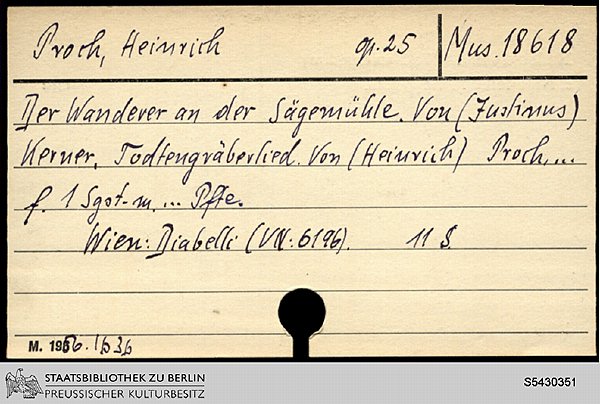 Proch, Heinrich op. 25 Mus. 18618
Der Wanderer an der Sägemühle. Von (Justinus)
Kerner. Todtengräberlied. Von (Heinrich) Proch, ...
f. 1 Sgst. m. ... Pfte.
Wien: Diabelli (VN: 6196). 11 S.
M. 1956.1636
STAATSBIBLIOTHEK ZU BERLIN
PREUSSISCHER KULTURBESITZ
S5430351